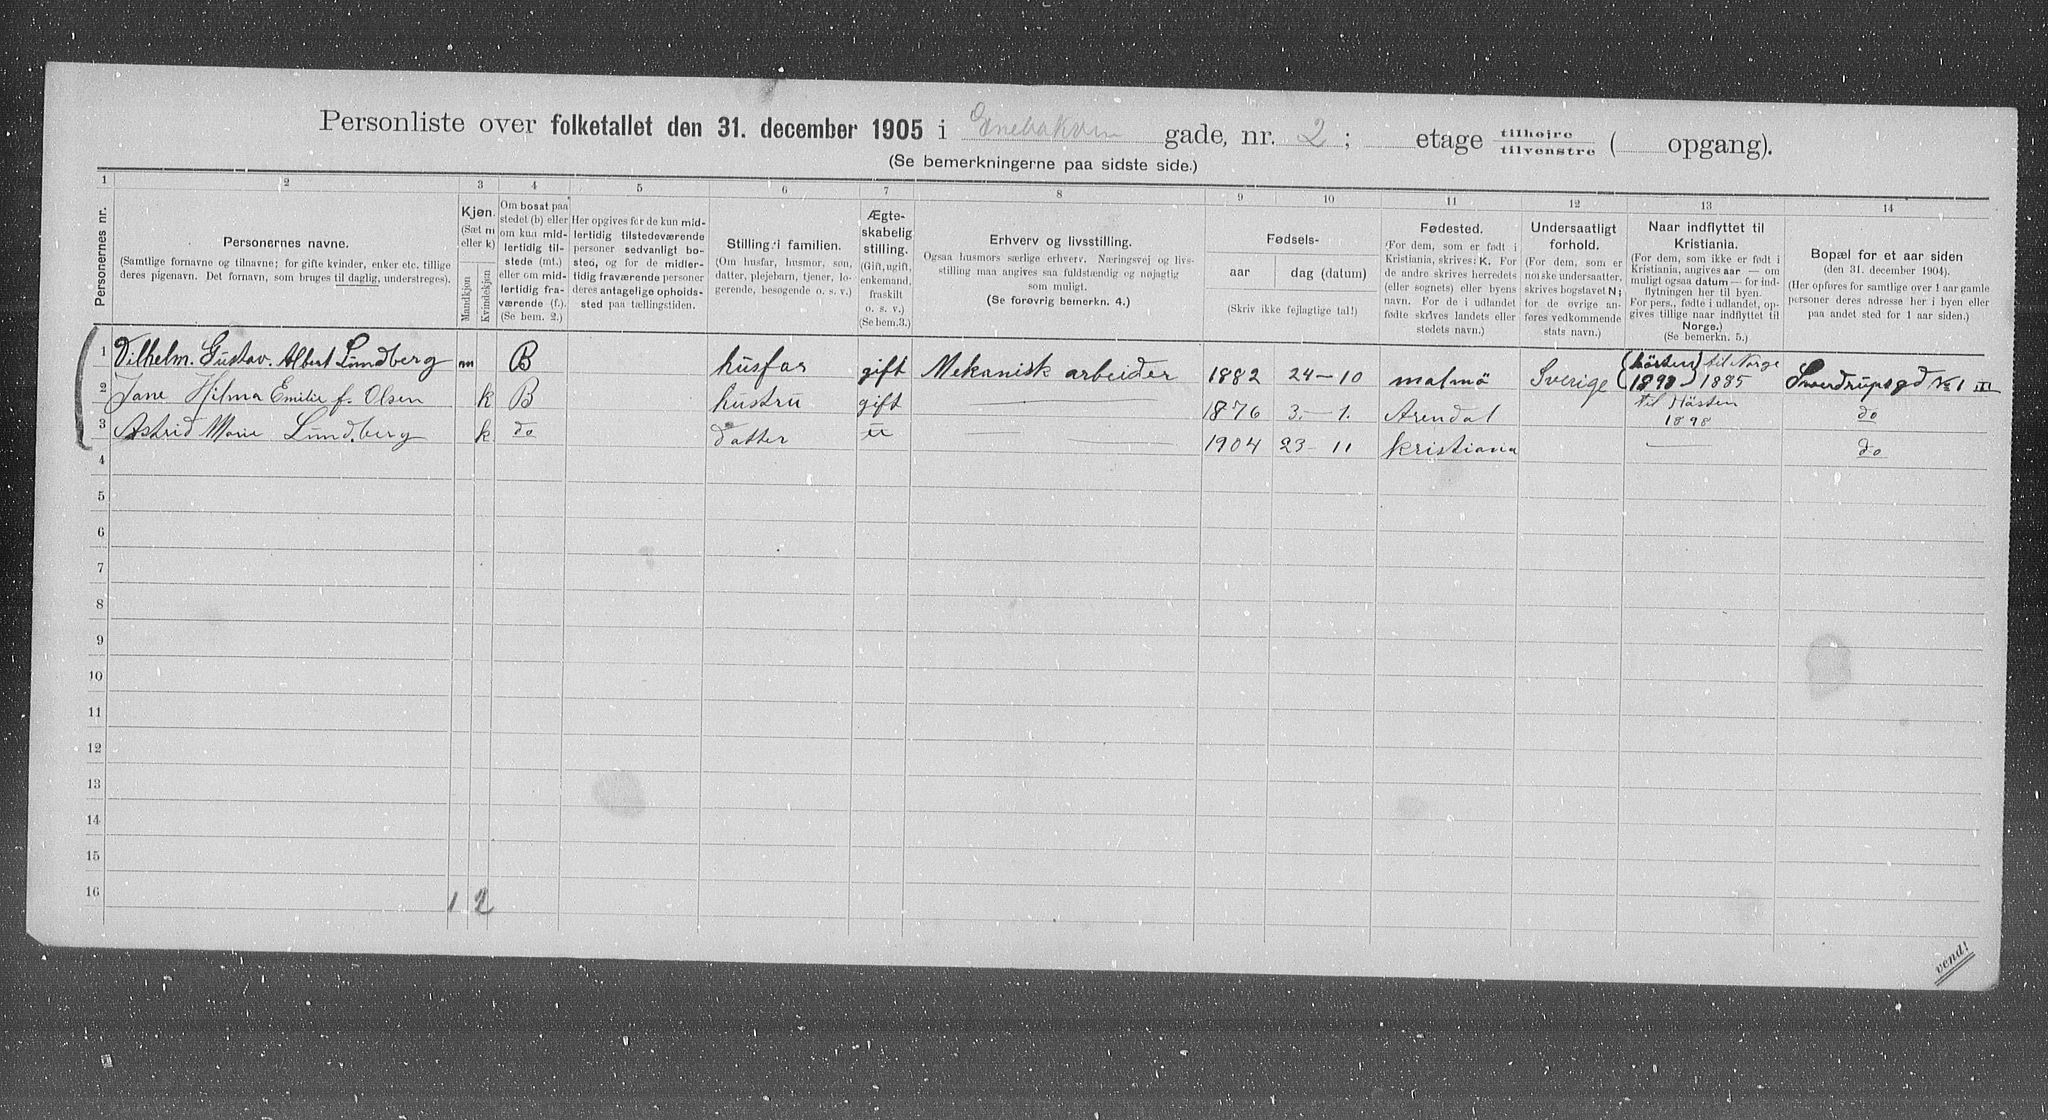 Personliste over folketallet den 31. december 1905 i Enebakvein gade, nr. 2; etage tilhøire tilvenstre ( opgang).
(Se bemerkningerne paa sidste side.)
1 2 3 4 5 6 7 8 9 10 11 12 13 14
Personernes nr.
Personernes navne.
(Samtlige fornavne og tilnavne; for gifte kvinder, enker etc. tillige
deres pigenavn. Det fornavn, som bruges til daglig, understreges).
Kjøn.
(Sæt m
eller k)
Mandkjøn
Kvindekjøn
Om bosat paa
stedet (b) eller
om kun mid-
lertidig til-
stede (mt.)
eller om mid-
lertidig fra-
værende (f.).
(Se bem. 2.)
Her opgives for de kun mid-
lertidig tilstedeværende
personer sedvanligt bo-
sted, og for de midler-
tidig fraværende personer
deres antagelige opholds-
sted paa tællingstiden.
Stilling i familien.
(Om husfar, husmor, søn,
datter, plejebarn, tjener, lo-
gerende, besøgende o. s. v.)
Ægte-
skabelig
stilling.
(Gift, ugift,
enkemand,
fraskilt
o. s. v.)
(Se bem. 3.)
Erhverv og livsstilling.
Ogsaa husmors særlige erhverv. Næringsvej og livs-
stilling maa angives saa fuldstændig og nøjagtig
som muligt.
(Se forøvrig bemerkn. 4.)
Fødsels-
aar dag (datum)
(Skriv ikke fejlagtige tal!)
Fødested.
(For dem, som er født i
Kristiania, skrives: K. For
de andre skrives herredets
(eller sognets) eller byens
navn. For de i udlandet
fødte skrives landets eller
stedets navn.)
Undersaatligt
forhold.
(For dem, som er
norske undersaatter,
skrives bogstavet N;
for de øvrige an-
føres vedkommende
stats navn.)
Naar indflyttet til
Kristiania.
(For dem, som ikke er født i
Kristiania, angives aar — om
muligt ogsaa datum — for ind-
flytningen her til byen.
For pers., fødte i udlandet, op-
gives tillige naar indflyttet til
Norge.)
(Se bemerkn. 5.)
Bopæl for et aar siden
(den 31. december 1904).
(Her opføres for samtlige over 1 aar gamle
personer deres adresse her i byen eller
paa andet sted for 1 aar siden.)
1 Vilhelm. Gustav. Albert Lundberg m B husfar gift Mekanisk arbeider 1882 24–10 malmö Sverige (hösten 1898) til Norge 1885 Sverdrupsgd No 1 III
2 Jane Hilma Emilie f. Olsen k B hustru gift — 1876 3.–1. Arendal til Hösten 1898 do
3 Astrid Marie Lundberg k do datter u — 1904 23–11 Kristiania — do
4
5
6
7
8
9
10
11
12
13
14
15
16
1 2
vend!